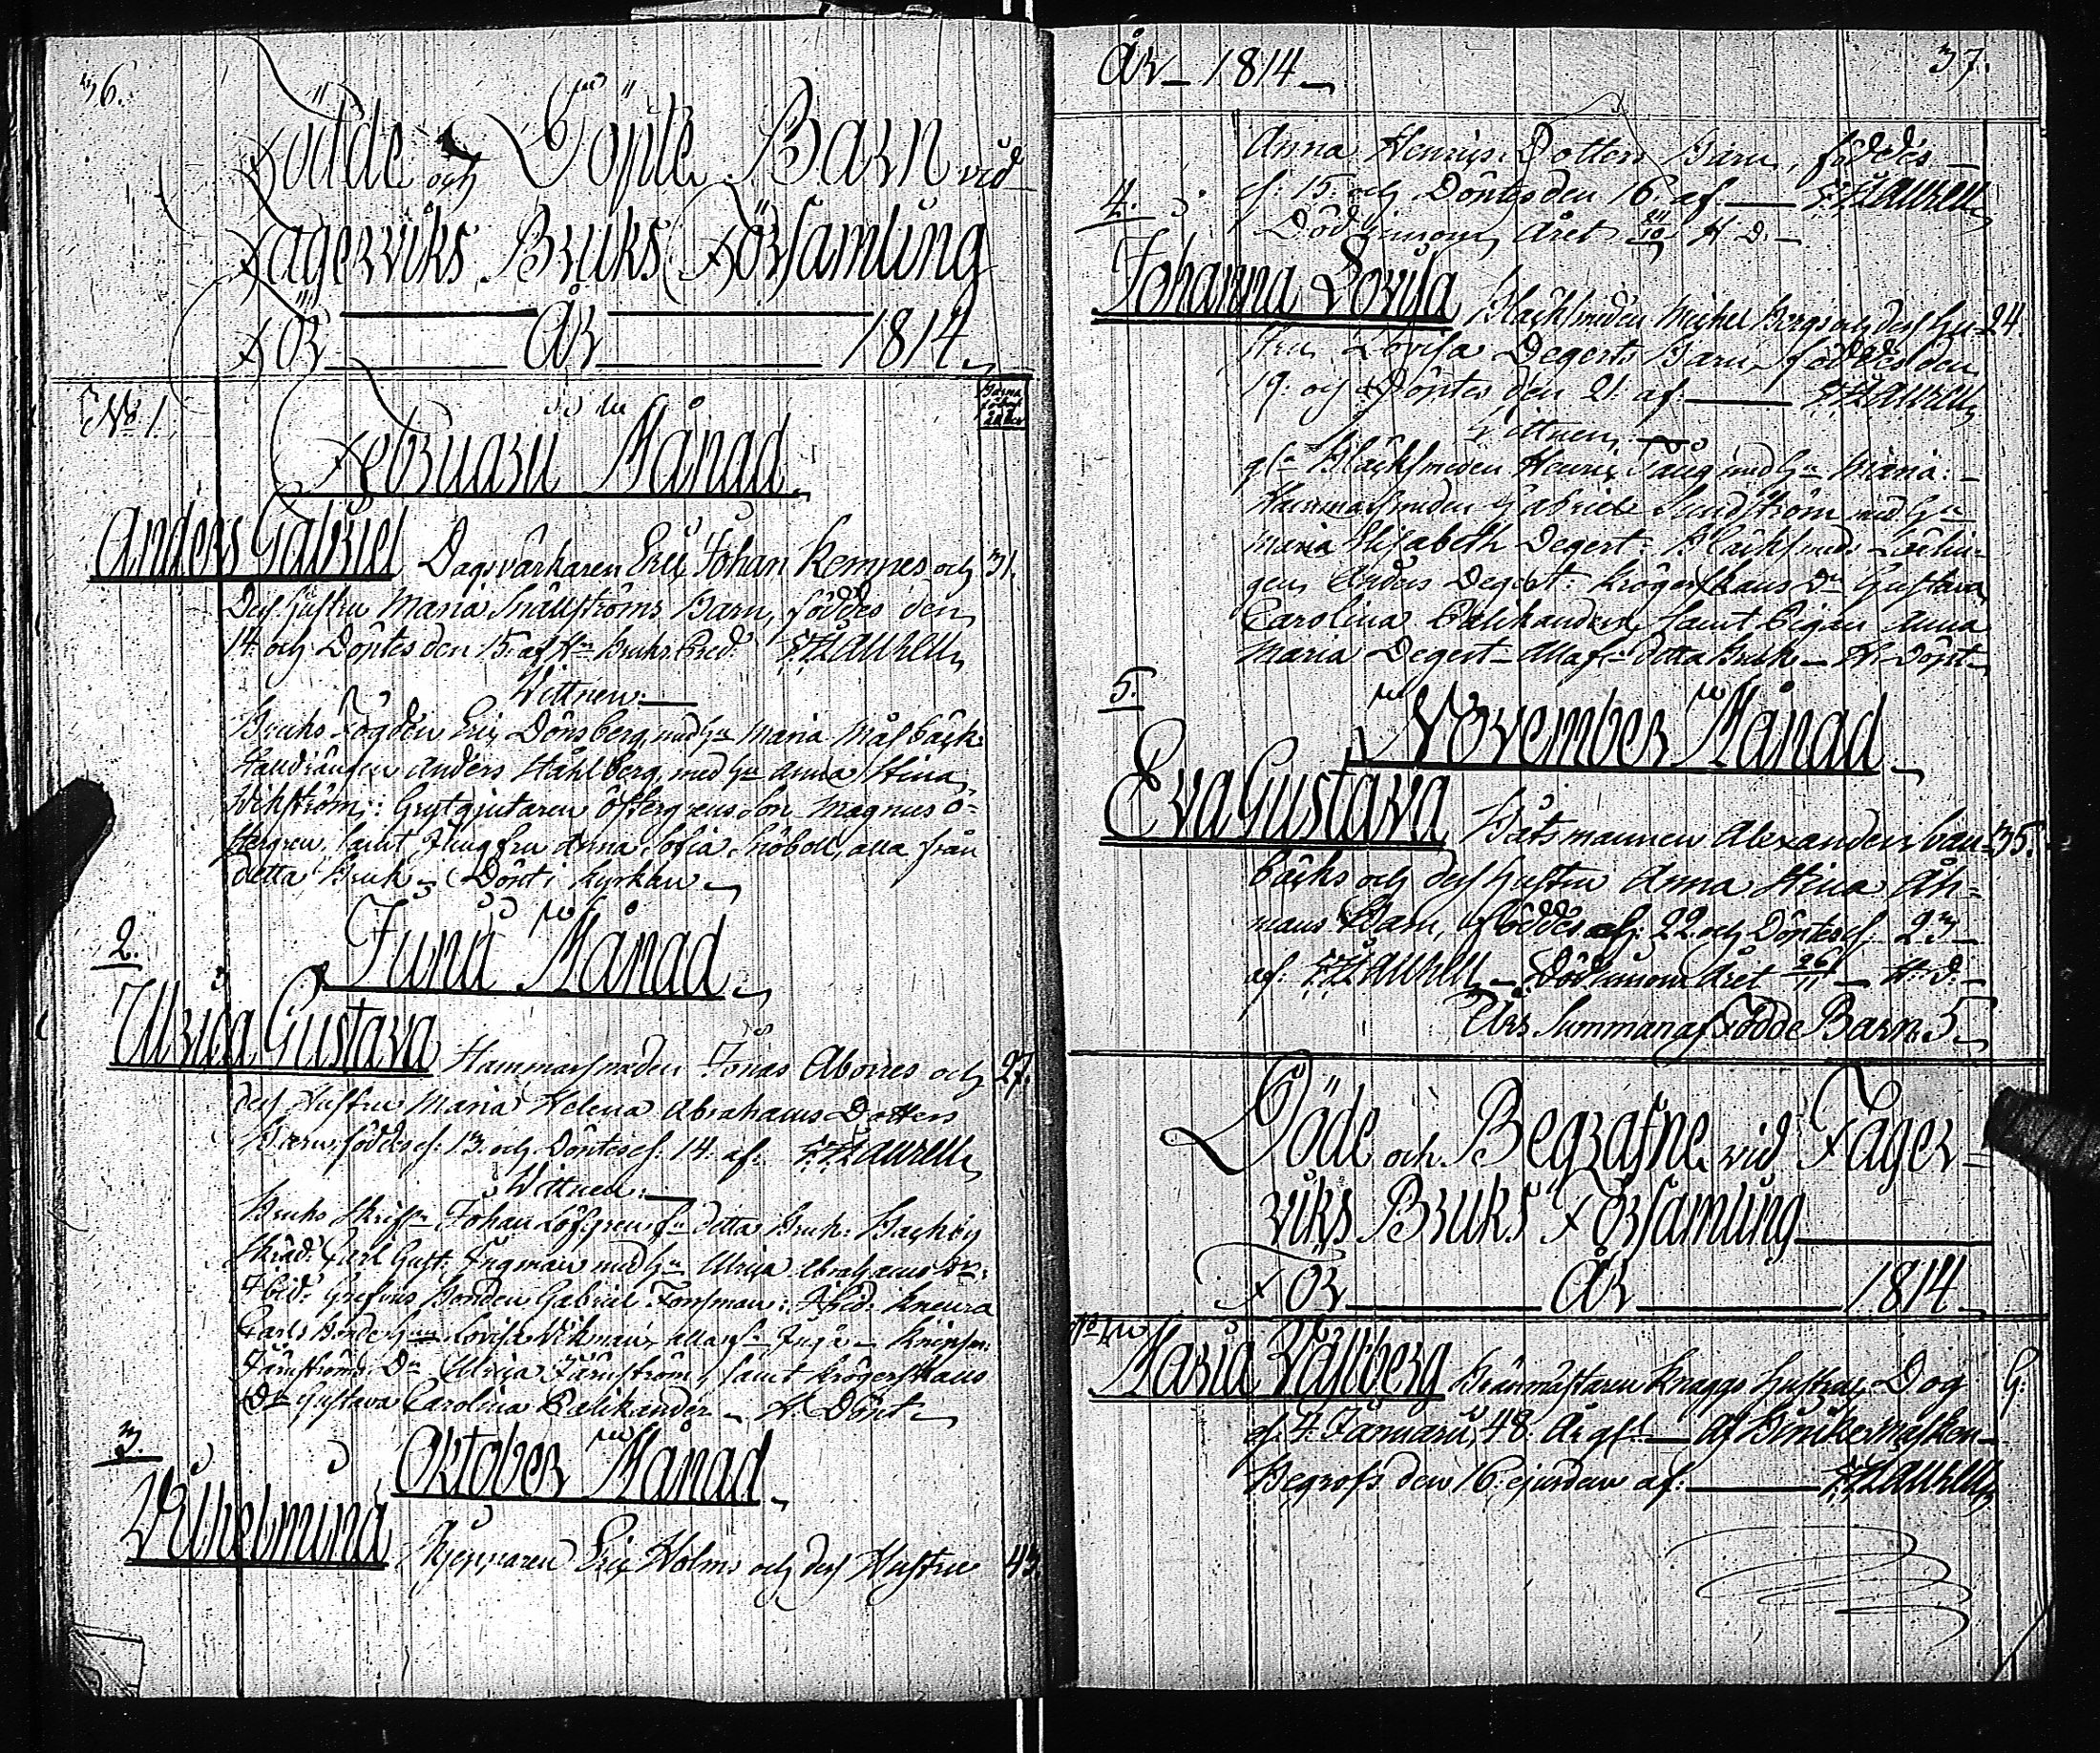 36.
Födde och Döpte Barn vid
Fagerviks Bruks Församling
För År 1814
No 1.
Februarii Månad
Anders Gabriel Dagsvärkaren Eric Johan Kempes och 31.
Dess Hustru Maria Snällströms Barn, föddes den
14. och Döptes den 15. af Hr Bruks Pred: Laurell
Vittnen:
Bruks Fogden Eric Dönsberg med Hu Maria Malbäck:
Handrängen Anders Ståhlberg, med Hu Anna Stina
Wikström: Grytgjutaren Östergrens Son Magnus Ö=
stergren, samt Jungfru Anna Sofia Sjöboll, alla från
detta Bruk. Döpt i kyrkan
2.
Junii Månad
Ulrica Gustava Hammarsmeden Jonas Aborres och 27.
dess Hustru Maria Helena Abrahams Dotters
Barn, föddes d: 13. och Döptes d: 14. af: Laurell
Vittnen:
Bruks Johan Löfgren fr detta Bruk:
Skräd: Carl Gust: Ingman med Hu Ulrica Abrahams Dr:
Ibid: Bonden Gabriel Forsman: Ibid:
Carls Lovisa Wikman, alla fr Ingå
Järnströms Dr Ulrica Järnström, samt krögerskans
Dr Gustava Carolina Palikander. H. Döpt
3.
Oktober Månad
Vilhelmina Eric Holms och dess Hustru 43.
År 1814 37.
Anna Henrics Dotters Barn, föddes
d: 15. och Döptes den 16. af Laurell
Död innom Året H. D.
4.
Johanna Lovisa Bläcksmeden Michel Bergs och dess Hu= 24.
stru Lovisa Degerts Barn, föddes den
19. och Döptes den 21. af: Laurell
Vittnen
Bläcksmeden Henric Tåeg med Hu Maria:
Hammarsmeden Gabriel Sundström med Hu
Maria Elisabeth Degert: Bläcksmeds
gen Anders Degert: krögerskans Dr Gustava
Carolina Palikander, samt Pigan Anna
Maria Degert. Alla fr detta Bruk. H. Döpt
5.
November Månad
Eva Gustava Båtsmannen Alexander 35.
bäcks och dess Hustru Anna Stina Åh=
mans Barn, föddes d: 22. och Döptes d: 23
af: Laurell Död innom Året 26/11 H: D:
Års Summan af Födde Barn 5
Döde och Begrafne vid Fager=
viks Bruks Församling
För År 1814
No 1.
Maria Knaggs Hustru, Dog G.
d: 4. Januarii, 48. År
Begrofs den 16. ejusdem af: Laurell